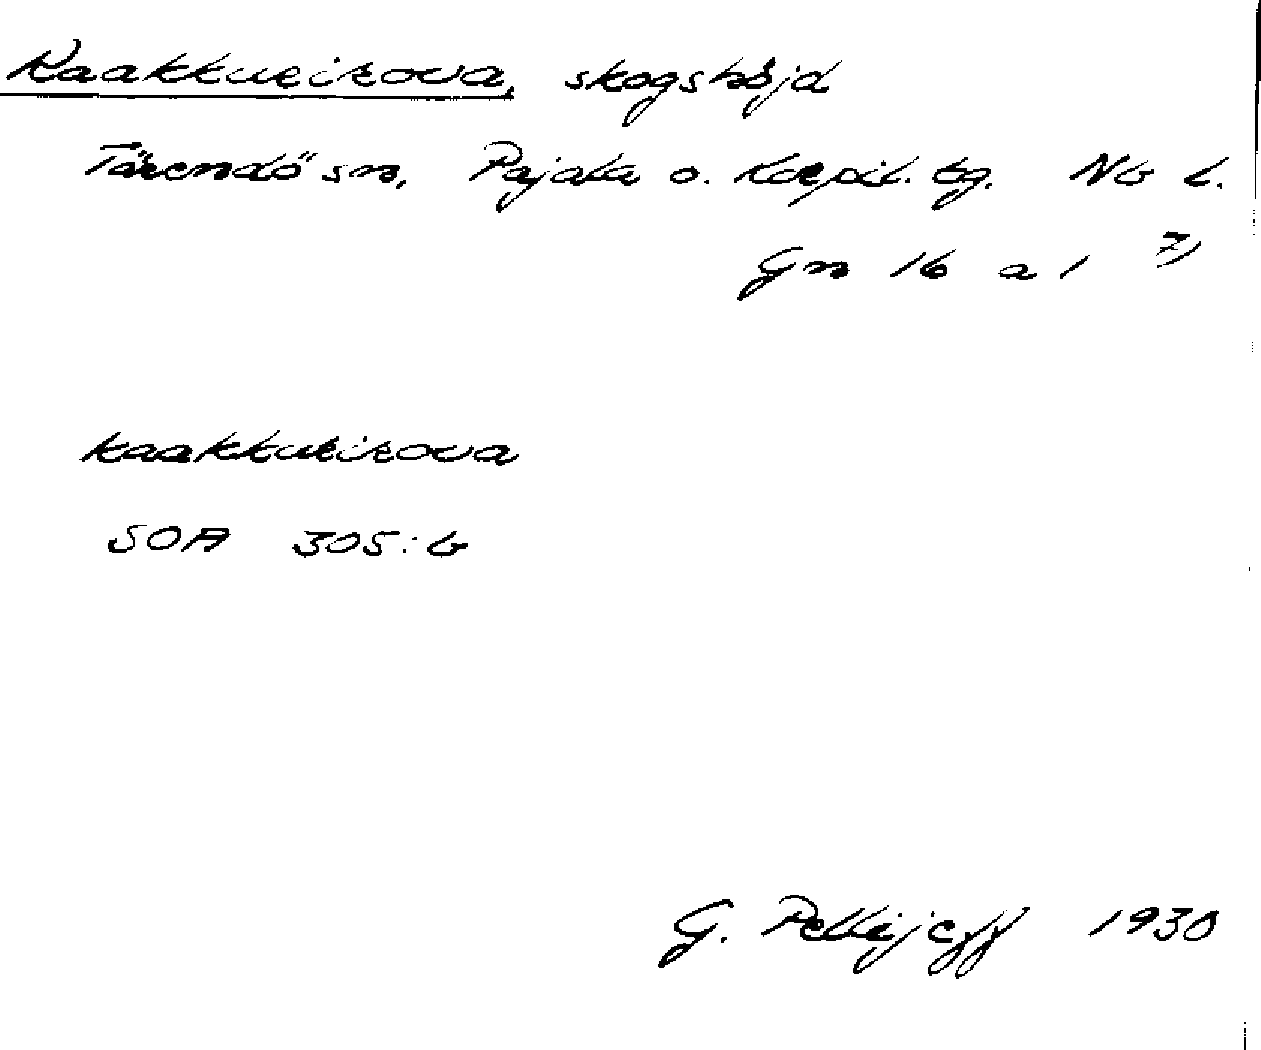 Kaakkurirova, skogshöjd
Tärendö sn, Pajala o. Korpil. tg. Nb l.
Gn 16 a 1 7)
kaakkurirova
SOA 305:6
G. Pellijeff 1930